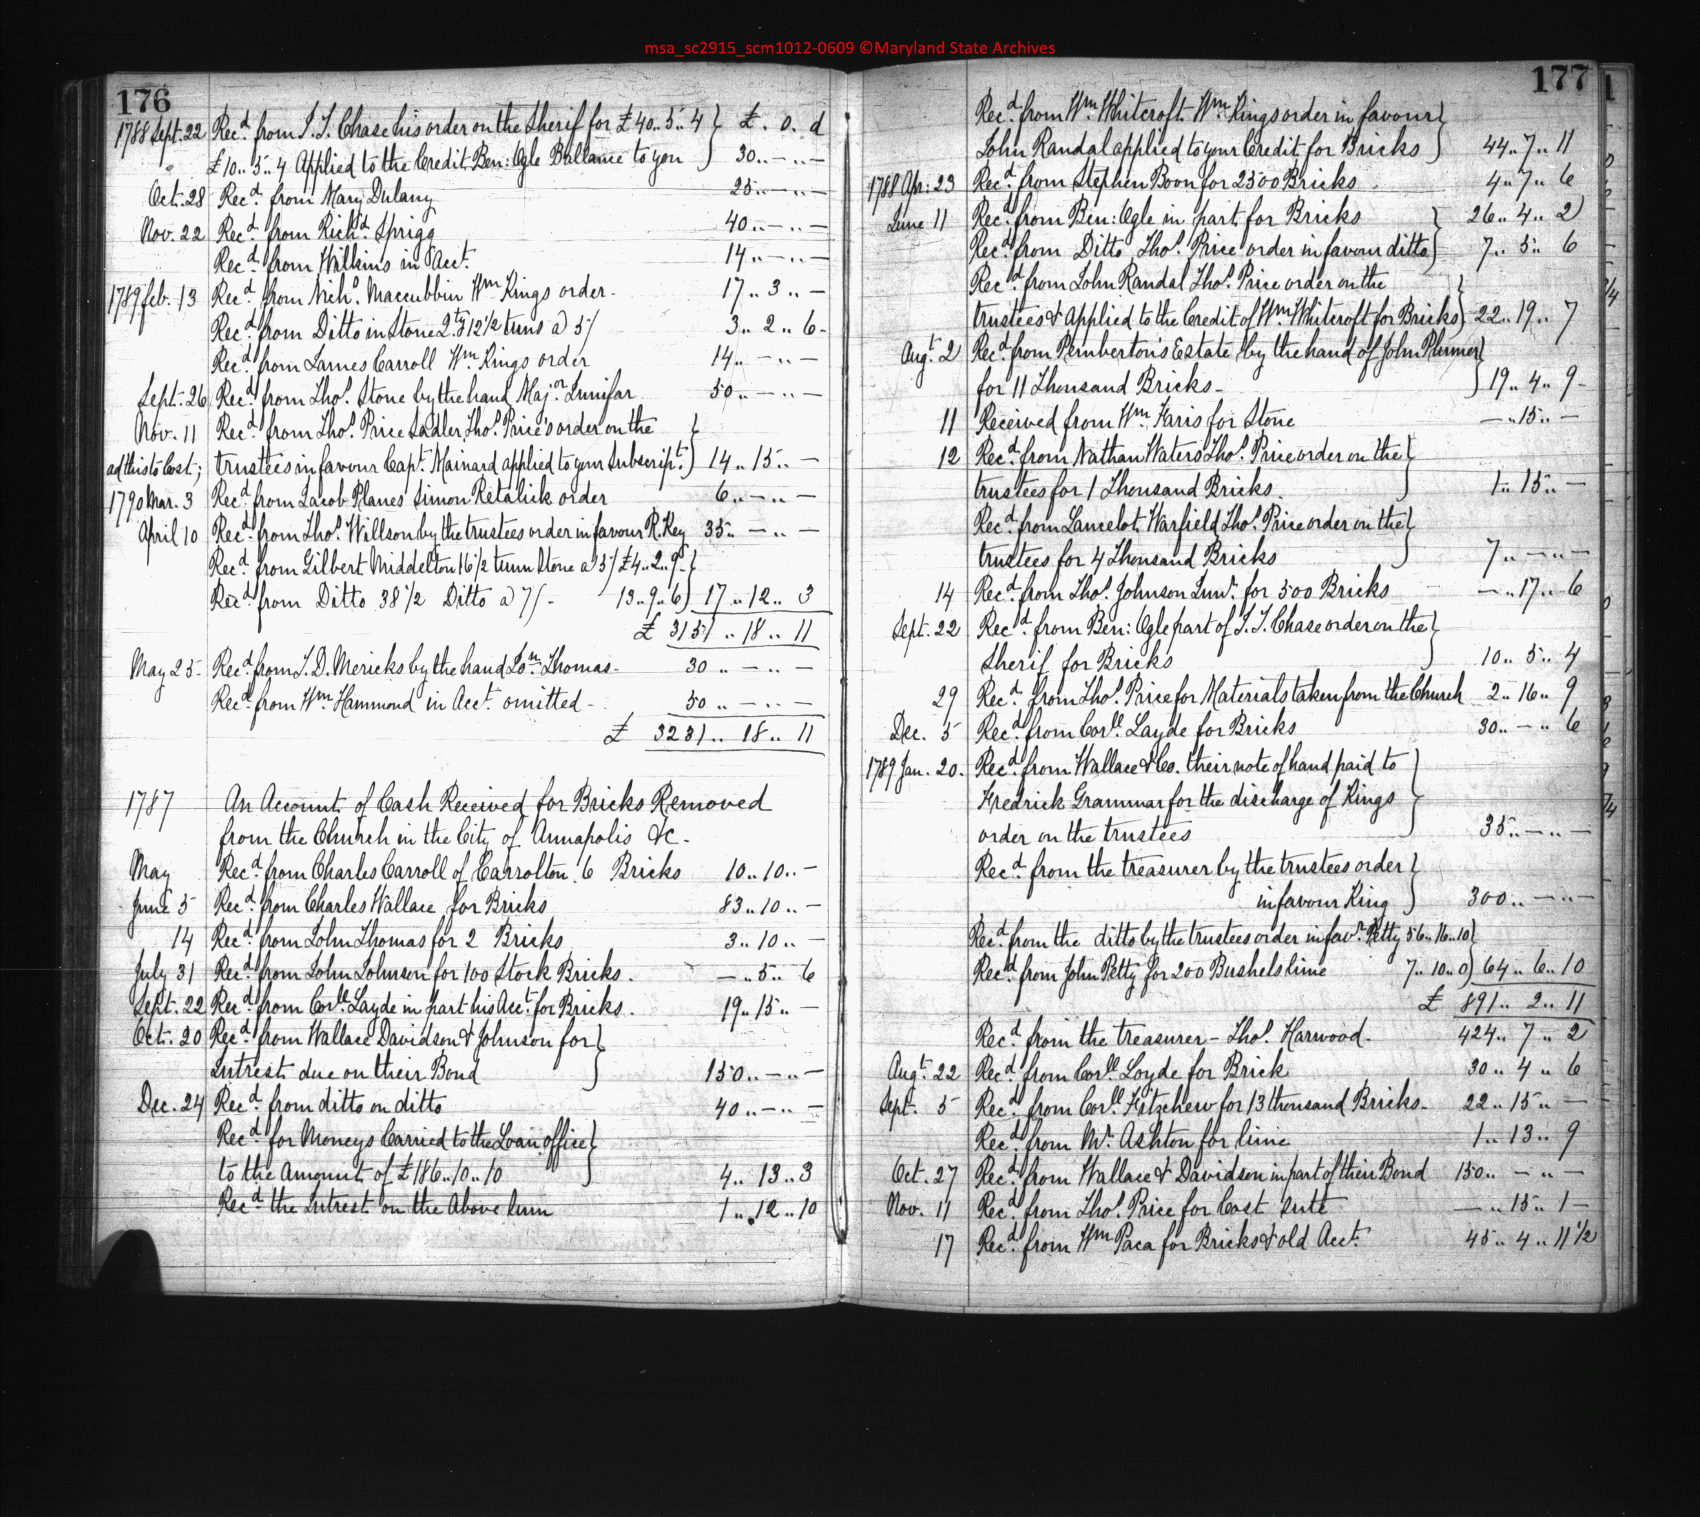 msa_sc2915_scm1012-0609 ©Maryland State Archives
176
1788 Sept. 22 Recd. from J. T. Chase his order on the Sherif for £40..5..4 } £. o. d
£10..5..4 Applied to the Credit Ben: Ogle Ballance to you } 30..—..—
Oct. 28 Recd. from Mary Dulany 25..—..—
Nov. 22 Recd. from Richd. Sprigg 40..—..—
Recd. from Wilkins in Acct. 14..—..—
1789 feb. 13 Recd. from Nichs. Maccubbin Wm Kings order - 17..3..—
Recd. from Ditto in Stone 12 1/2 tuns a 5/ 3..2..6-
Recd. from James Carroll Wm. Kings order 14..—..—
Sept. 26 Recd. from Thos. Stone by the hand Major Junifar 50..—..—
Nov. 11 Recd. from Thos. Price Sadler, Thos. Price's order on the }
ad this to Cost; trustees in favour Capt. Mainard applied to your Subscript. } 14..15..—
1790 Mar. 3 Recd. from Jacob Planes Simon Retalick order 6..—..—
April 10 Recd. from Thos. Willson by the trustees order in favour R. Key 35..—..—
Recd. from Gilbert Middelton 16 1/2 tunn Stone a 5/ £4..2..9- }
Recd. from Ditto 38 1/2 Ditto a 7/- 13..9..6 } 17..12..3
£ 3151..18..11
May 25- Recd. from J. D. Mericks by the hand Jon. Thomas- 30..—..—
Recd. from Wm. Hammond in Acct. omitted - 50..—..—
£ 3231..18..11
1787 An Account of Cash Received for Bricks Removed
from the Church in the City of Annapolis &c -
May Recd. from Charles Carroll of Carrolton 6 Bricks 10..10..—
June 5 Recd. from Charles Wallace for Bricks 83..10..—
14 Recd. from John Thomas for 2 Bricks 3..10..—
July 31 Recd. from John Johnson for 100 Stock Bricks. —..5..6
Sept. 22 Recd. from Corll. Layde in part his Acct. for Bricks. 19..15..—
Oct. 20 Recd. from Wallace Davidson & Johnson for }
Intrest due on their Bond } 150..—..—
Dec. 24 Recd. from ditto on ditto 40..—..—
Recd. for Moneys Carried to the Loan office }
to the Amount of £186..10..10 } 4..13..3
Recd. the Intrest on the Above Sum 1..12..10
177
Recd. from Wm. Whitcroft Wm. Kings order in favour }
John Randal applied to your Credit for Bricks } 44..7..11
1788 Apr: 23 Recd. from Stephen Boon for 2500 Bricks 4..7..6
June 11 Recd. from Ben: Ogle in part for Bricks } 26..4..2
Recd. from Ditto Thos. Price order in favour ditto } 7..5..6
Recd. from John Randal Thos. Price order on the }
trustees & Applied to the Credit of Wm Whitcroft for Bricks } 22..19..7
Augt. 2 Recd. from Pemberton's Estate by the hand of John Plumer }
for 11 Thousand Bricks- } 19..4..9-
11 Received from Wm. Faris for Stone —..15..—
12 Recd. from Nathan Waters Thos. Price order on the }
trustees for 1 Thousand Bricks. } 1..15..—
Recd. from Lancelot Warfield Thos. Price order on the }
trustees for 4 Thousand Bricks } 7..—..—
14 Recd. from Thos. Johnson Junr. for 500 Bricks —..17..6
Sept. 22 Recd. from Ben: Ogle part of J. T. Chase order on the }
Sherif for Bricks } 10..5..4
29 Recd. from Thos. Price for Materials taken from the Church 2..16..9
Dec. 5 Recd. from Corll. Layde for Bricks 30..—..6
1789 Jan. 20. Recd. from Wallace & Co. their note of hand paid to }
Fredrick Grammar for the discharge of Kings }
order on the trustees } 35..—..—
Recd. from the treasurer by the trustees order }
in favour King } 300..—..—
Recd. from the ditto by the trustees order in favr. Petty 56..16..10 }
Recd. from John Petty for 200 Bushels lime 7..10..0 } 64..6..10
£ 891..2..11
Recd. from the treasurer - Thos. Harwood. 424..7..2
Augt. 22 Recd. from Corll. Loyde for Brick 30..4..6
Sept. 5 Recd. from Corll. Fitzchew for 13 thousand Bricks- 22..15..—
Recd. from Mr. Ashton for lime 1..13..9
Oct. 27 Recd. from Wallace & Davidson in part of their Bond 150..—..—
Nov. 11 Recd. from Thos. Price for Cost Sute —..15..1—
17 Recd. from Wm Paca for Bricks & old Acct. 45..4..11 1/2